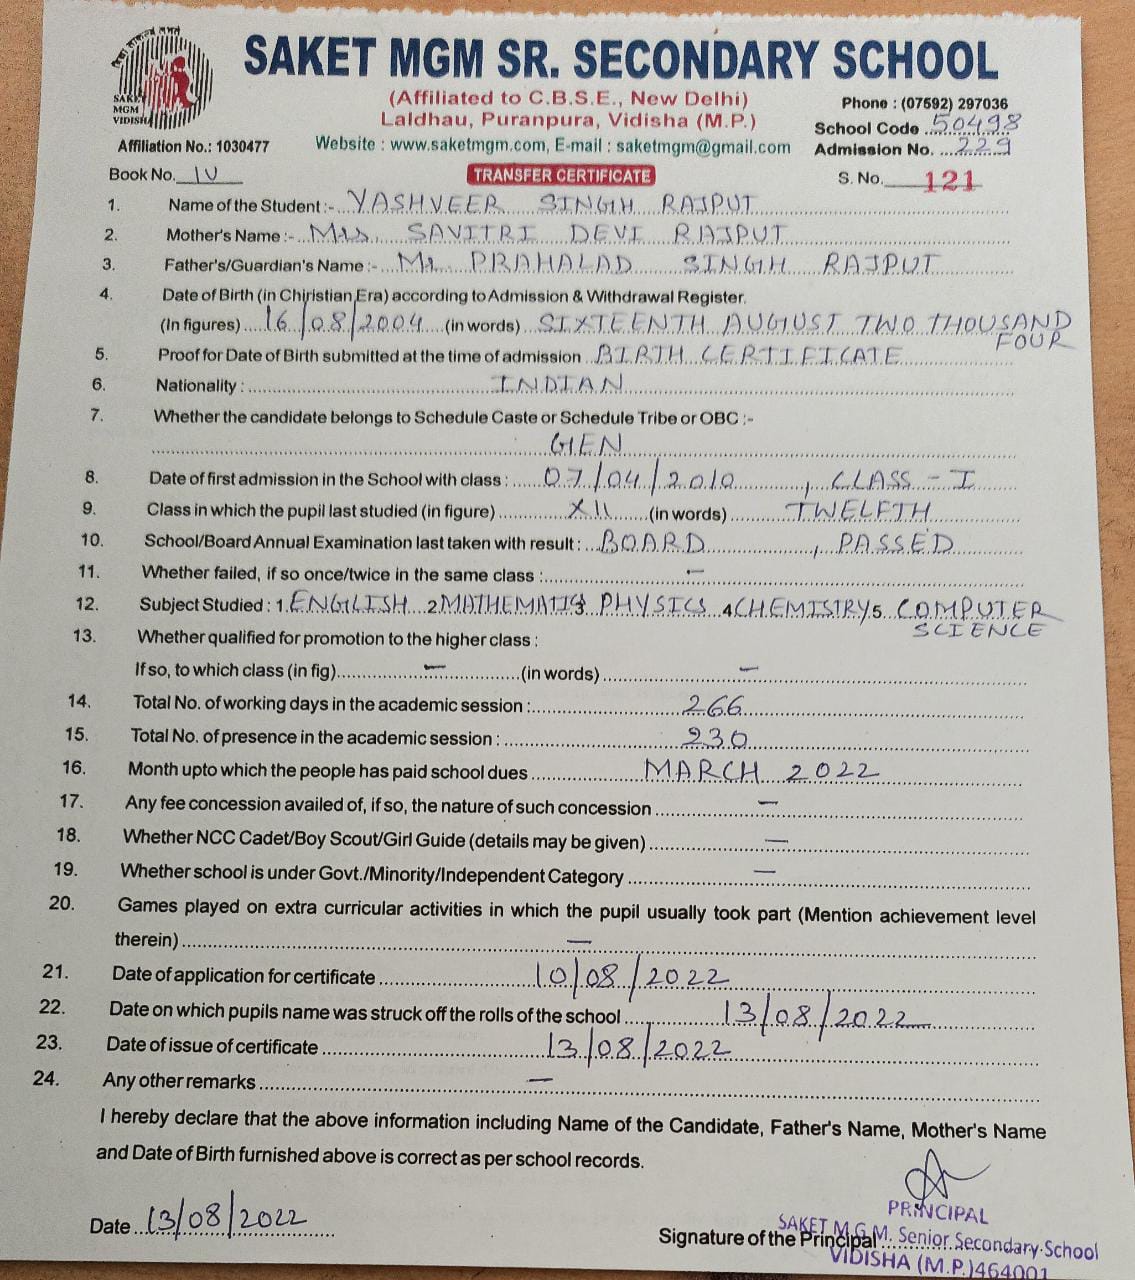 SAKET MGM SR. SECONDARY SCHOOL
SAKET
MGM
VIDISHA
(Affiliated to C.B.S.E., New Delhi)
Laldhau, Puranpura, Vidisha (M.P.)
Phone : (07592) 297036
School Code ...50498
Affiliation No.: 1030477 Website : www.saketmgm.com, E-mail : saketmgm@gmail.com Admission No. ...229
Book No. IV TRANSFER CERTIFICATE S. No. 121
1. Name of the Student :- YASHVEER SINGH RAJPUT
2. Mother's Name :- Mrs. SAVITRI DEVI RAJPUT
3. Father's/Guardian's Name :- Mr. PRAHALAD SINGH RAJPUT
4. Date of Birth (in Chiristian Era) according to Admission & Withdrawal Register.
(In figures) 16/08/2004 (in words) SIXTEENTH AUGUST TWO THOUSAND
FOUR
5. Proof for Date of Birth submitted at the time of admission BIRTH CERTIFICATE
6. Nationality : INDIAN
7. Whether the candidate belongs to Schedule Caste or Schedule Tribe or OBC :-
GEN
8. Date of first admission in the School with class : 07/04/2010, CLASS - I
9. Class in which the pupil last studied (in figure) XII (in words) TWELFTH
10. School/Board Annual Examination last taken with result : BOARD, PASSED
11. Whether failed, if so once/twice in the same class : —
12. Subject Studied : 1. ENGLISH 2. MATHEMATICS 3. PHYSICS 4. CHEMISTRY 5. COMPUTER
SCIENCE
13. Whether qualified for promotion to the higher class :
If so, to which class (in fig) — (in words) —
14. Total No. of working days in the academic session : 266
15. Total No. of presence in the academic session : 230
16. Month upto which the people has paid school dues MARCH 2022
17. Any fee concession availed of, if so, the nature of such concession —
18. Whether NCC Cadet/Boy Scout/Girl Guide (details may be given) —
19. Whether school is under Govt./Minority/Independent Category —
20. Games played on extra curricular activities in which the pupil usually took part (Mention achievement level
therein) —
21. Date of application for certificate 10/08/2022
22. Date on which pupils name was struck off the rolls of the school 13/08/2022
23. Date of issue of certificate 13/08/2022
24. Any other remarks —
I hereby declare that the above information including Name of the Candidate, Father's Name, Mother's Name
and Date of Birth furnished above is correct as per school records.
Date 13/08/2022
Signature of the Principal
PRINCIPAL
SAKET M.G.M. Senior Secondary School
VIDISHA (M.P.) 464001